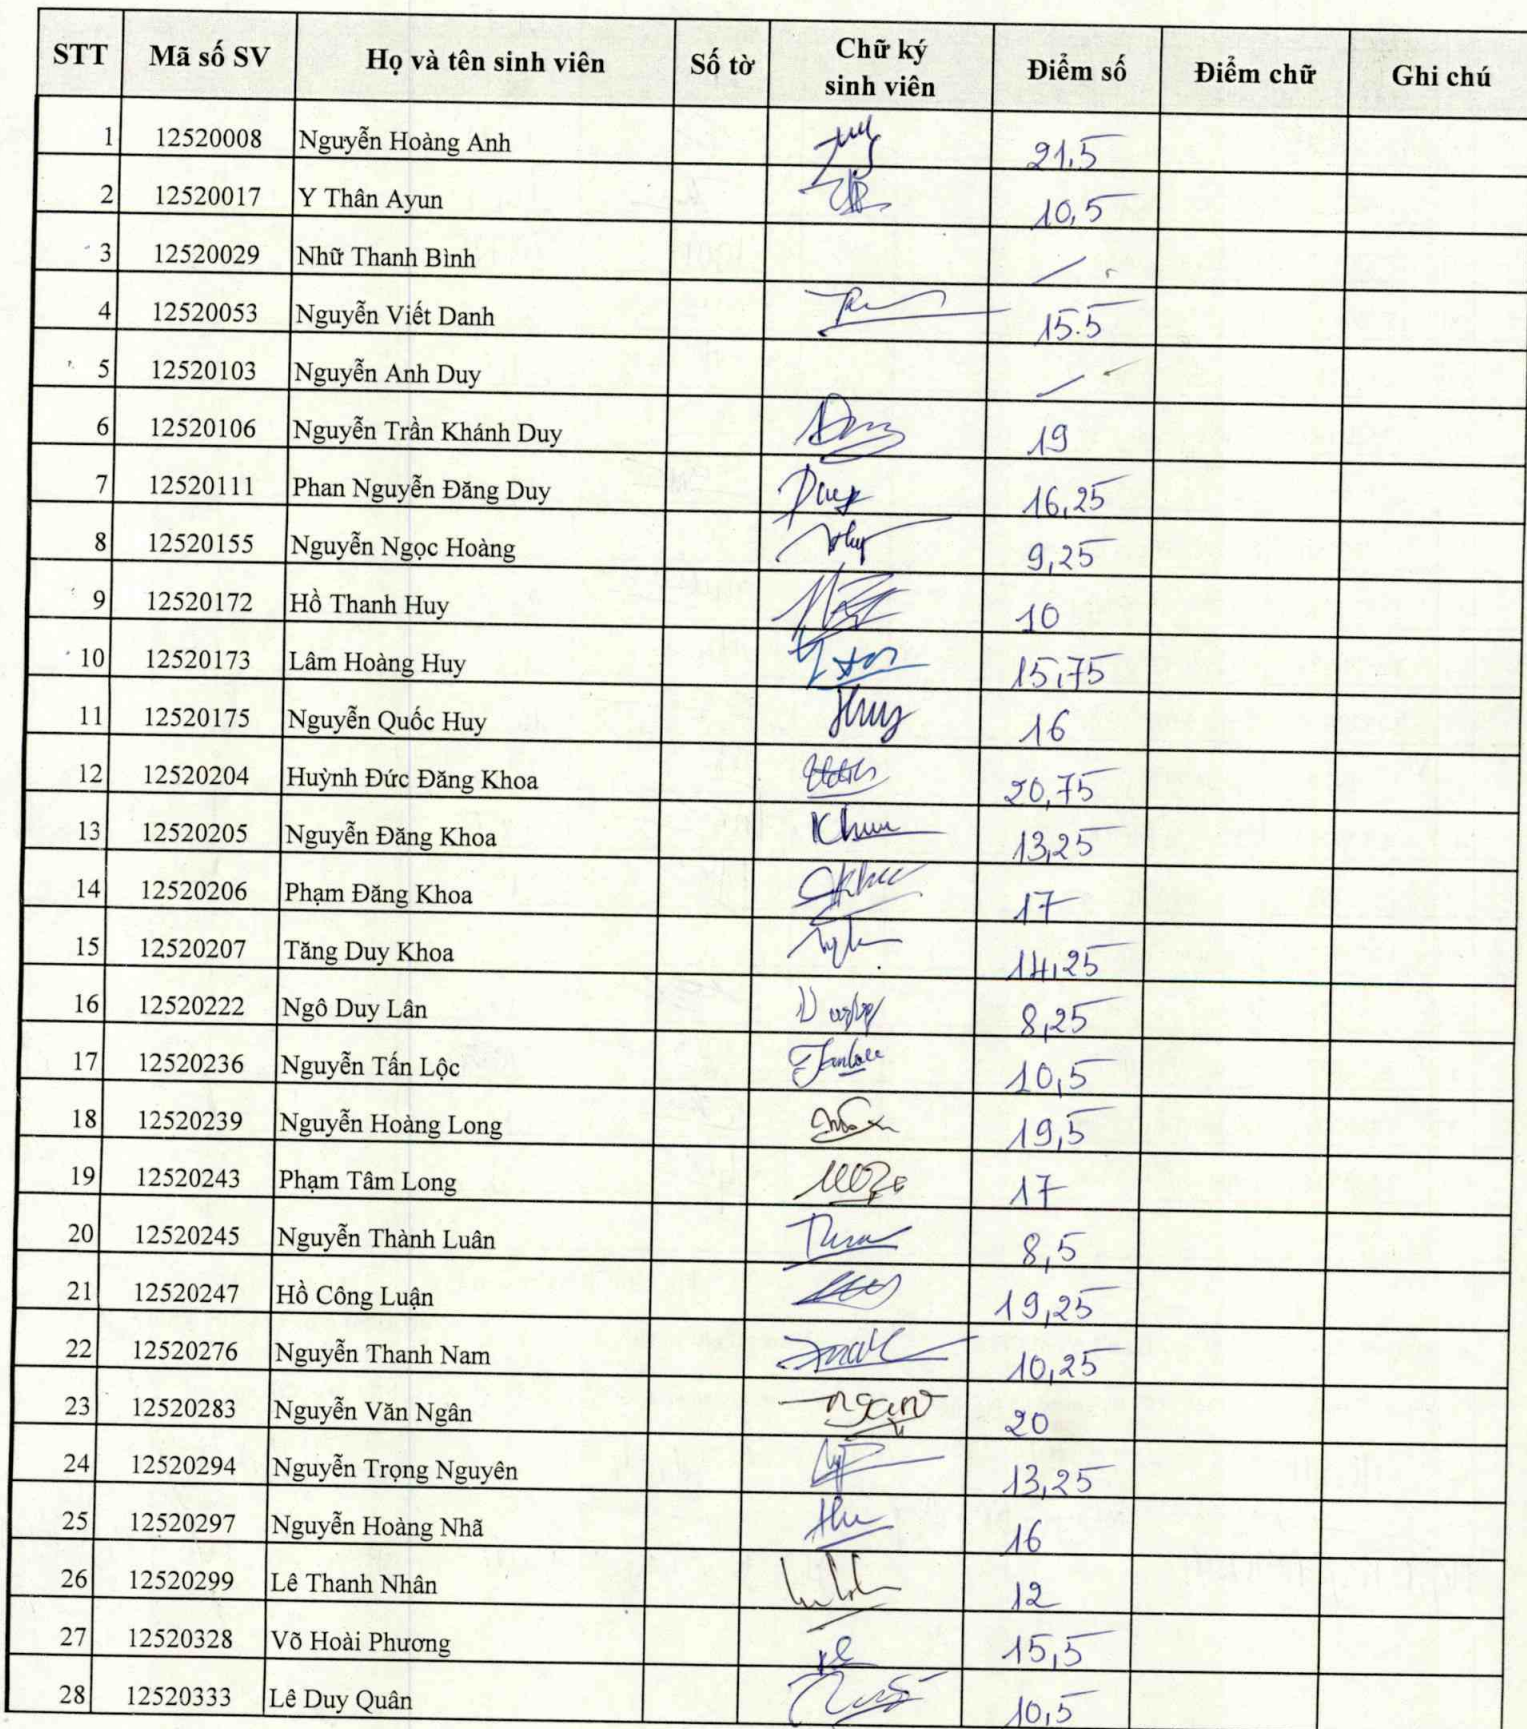 STT Mã số SV Họ và tên sinh viên Số tờ Chữ ký sinh viên Điểm số Điểm chữ Ghi chú
1 12520008 Nguyễn Hoàng Anh 21,5
2 12520017 Y Thân Ayun 10,5
3 12520029 Nhữ Thanh Bình
4 12520053 Nguyễn Viết Danh 15.5
5 12520103 Nguyễn Anh Duy
6 12520106 Nguyễn Trần Khánh Duy 19
7 12520111 Phan Nguyễn Đăng Duy 16,25
8 12520155 Nguyễn Ngọc Hoàng 9,25
9 12520172 Hồ Thanh Huy 10
10 12520173 Lâm Hoàng Huy 15,75
11 12520175 Nguyễn Quốc Huy Huy 16
12 12520204 Huỳnh Đức Đăng Khoa 20,75
13 12520205 Nguyễn Đăng Khoa 13,25
14 12520206 Phạm Đăng Khoa 17
15 12520207 Tăng Duy Khoa 14,25
16 12520222 Ngô Duy Lân 8,25
17 12520236 Nguyễn Tấn Lộc 10,5
18 12520239 Nguyễn Hoàng Long 19,5
19 12520243 Phạm Tâm Long 17
20 12520245 Nguyễn Thành Luân 8,5
21 12520247 Hồ Công Luận 19,25
22 12520276 Nguyễn Thanh Nam 10,25
23 12520283 Nguyễn Văn Ngân 20
24 12520294 Nguyễn Trọng Nguyên 13,25
25 12520297 Nguyễn Hoàng Nhã 16
26 12520299 Lê Thanh Nhân 12
27 12520328 Võ Hoài Phương 15,5
28 12520333 Lê Duy Quân 10,5